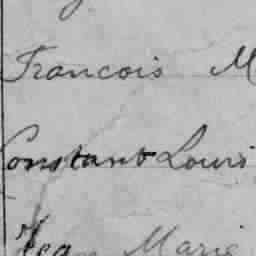 Francois M
Constant Louis
Marie